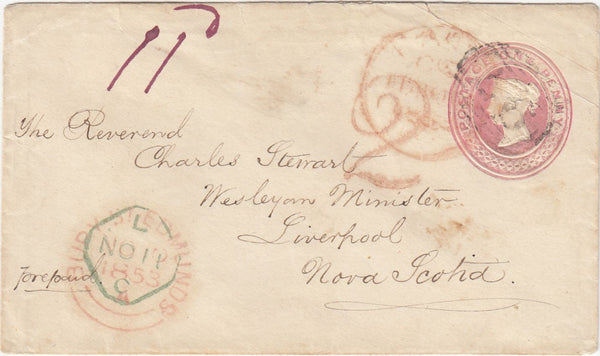 11D
PAID
POSTAGE ONE PENNY
The Reverend
Charles Stewart
Wesleyan Minister
Liverpool
Nova Scotia.
prepaid.
BURY ST EDMUNDS
1853
L
NO 11
C